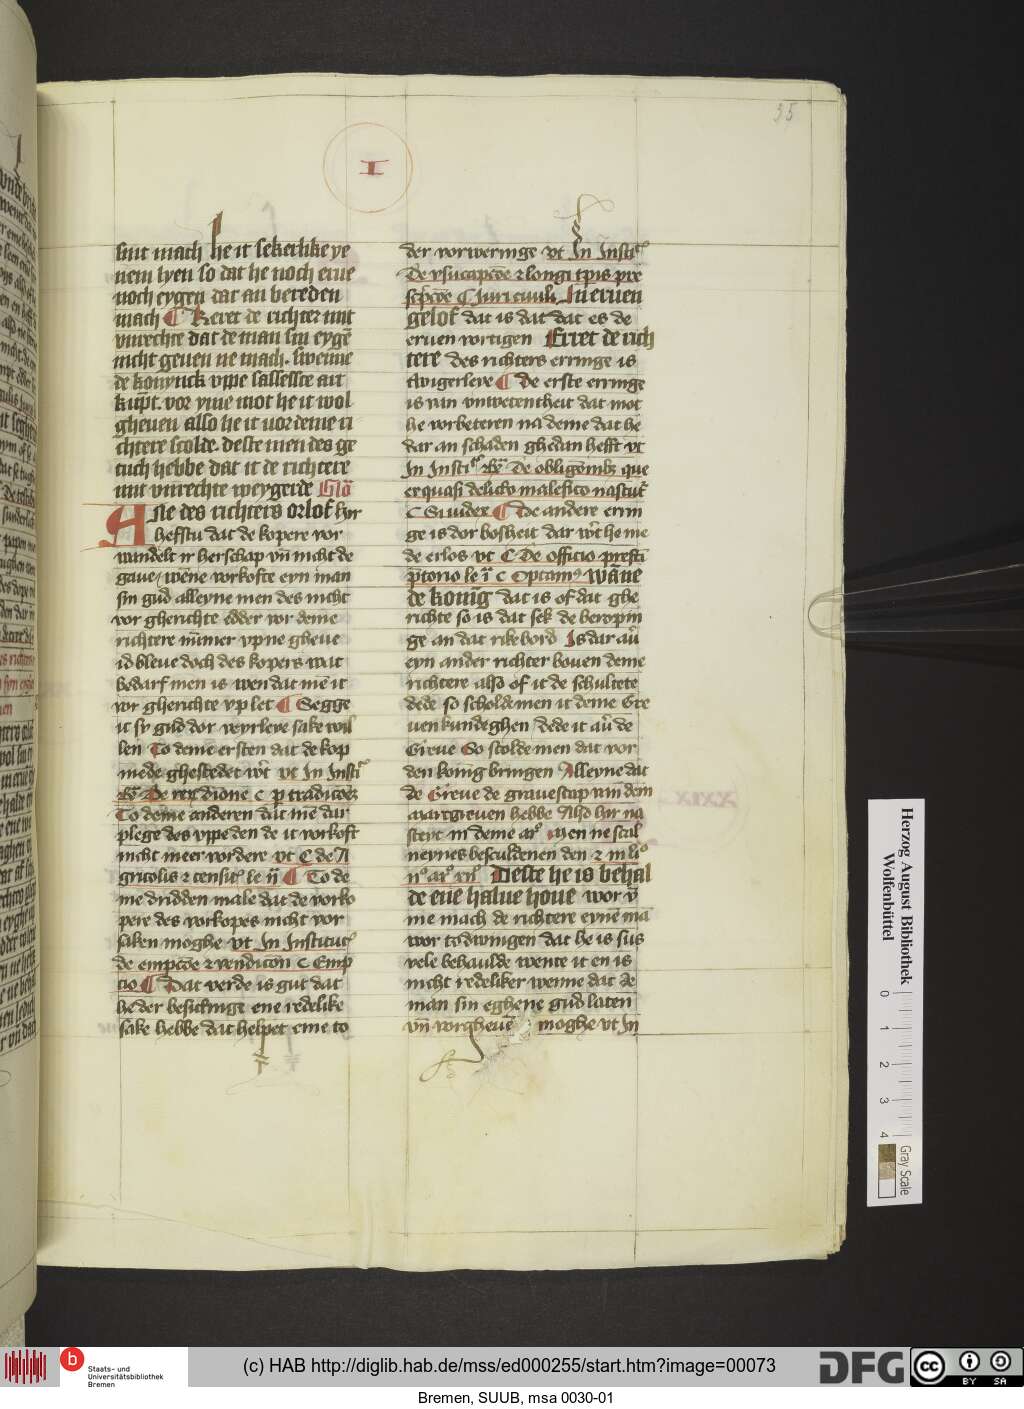 35
I
sint mach he it sekerlike ye
nem lyen so dat he noch erue
noch eygen dar an bereden
mach ¶ Keret de richter mit
vnrechte dat de man sin eygē
nicht geuen ne mach. swenne
de konynck vppe sassessce art
kūpt. vor yme mot he it wol
gheuen also he it vor deme ri
chtere scolde. deste men des ge
tuch hebbe dat it de richtere
mit vnrechte weygerde Glō
Ane des richters orlof hyr
hefstu dat de kopere vor
wandelt ir herschap vn̄ nicht de
gaue / wēne vorkofte eyn man
sin gud alleyne men des nicht
vor gherichte edder vor deme
richtere nūmer vpne gheue
id bleue doch des kopers wat
bedarf men is wen dat mē it
vor gherichte vp let ¶ Segge
it sy gud dor veyrleye sake wil
len To deme ersten dat de kop
mede ghestedet wͤt vt In Insti
De rex dione C p tradicōēz
To deme anderen dat mē dar
plege des vppe den de it vorkoft
nicht meer vordere vt C de A
gricolis ⁊ censit le ij ¶ To de
me dridden male dat de vorko
pere des vorkopes nicht vor
saken moghe vt In Institut
de empcōe ⁊ vendicōn C Emp
cio ¶ Dat verde is gut dat
he der besichtige ene redelike
sake hebbe dat helpet eme to
der vorweringe vt In Insti
De vsucapcōe ⁊ longi tp̄is pre
scp̄cōe C Juri ciuili In eruen
gelof dat is dat dat es de
eruen vortigen Erret de rich
tere des richters erringe is
twigerleye ¶ de erste erringe
is van vnwetentheit dat mot
he vorbeteren na deme dat he
dar an schaden ghedan hefft vt
In Insti De obligōnibz que
ex quasi delicto malefico nascūt
C Si iudex ¶ De andere errin
ge is dor bosheit dar wͤt he me
de erlos vt C De officio prefcti
p̄torio le ī C Optam⁹ Wāne
de konīg dat is of dat ghe
richte so is dat sek de beropin
ge an dat rike bord Is dar au̅
eyn ander richter bouen deme
richtere also of it de schultete
dede so scholdemen it deme Gre
uen kundeghen / dede it au̅ de
Greue So scolde men dat vor
den konig bringen Alleyne dat
de Greue de grauescap van dem
Marcgreuen hebbe Also hir na
steyt in deme ar⁹ Men ne scal
neynes besculdenen den ⁊ in li⁰
ar⁹ Deste he is behal
de ene halue houe wor v̄
me mach de richtere eyne mā
vor to dwingen dat he is sus
vele behaulde wente it en is
nicht redeliker wenne dat de
man sin eghene gud laten
vn̄ vorgheuē moghe vt In
Herzog August Bibliothek
Wolfenbüttel
0 1 2 3 4
Gray Scale
b Staats- und
Universitätsbibliothek
Bremen
(c) HAB http://diglib.hab.de/mss/ed000255/start.htm?image=00073
DFG
cc BY SA
Bremen, SUUB, msa 0030-01